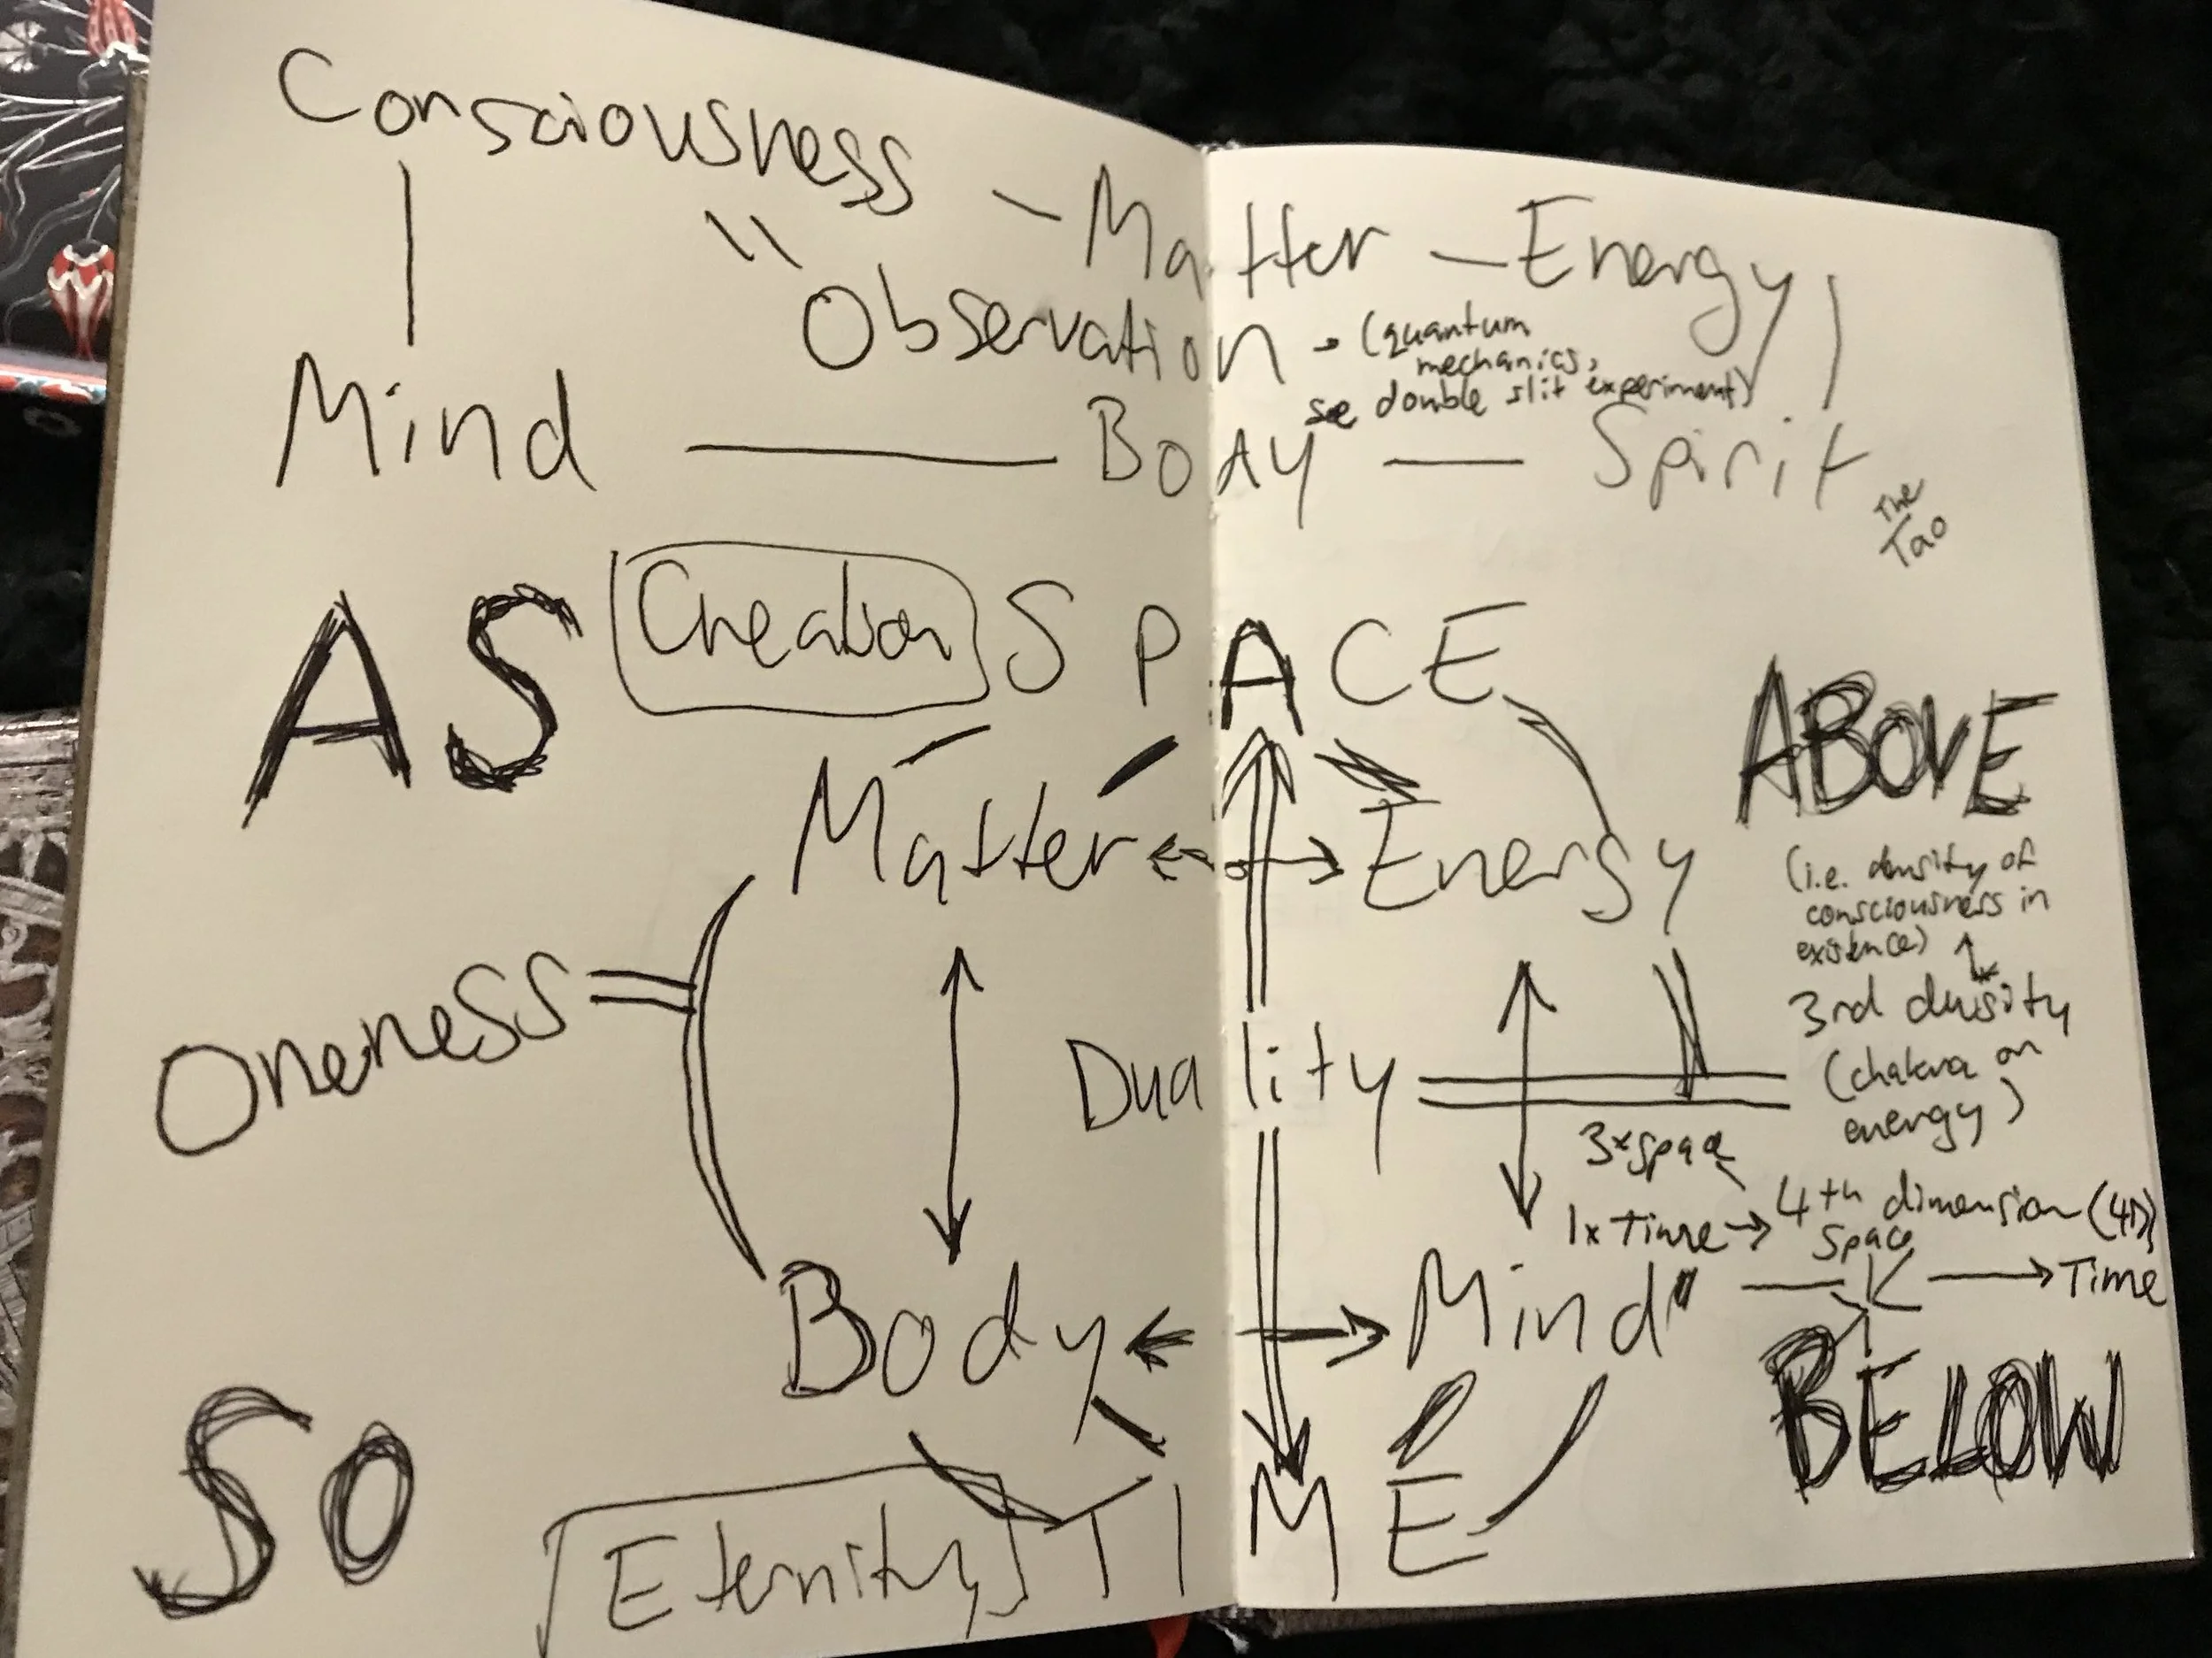 Consciousness - Matter - Energy
Observation → (quantum
mechanics,
see double slit experiment)
Mind — BODY — Spirit
The
Tao
AS Creation SPACE ABOVE
Matter Energy
(i.e. density of
consciousness in
existence)
Oneness
3rd density
Duality
(chakra or
energy)
3x space
1x Time → 4th dimension (4D)
Space
Body Mind Time
SO Eternity TIME BELOW